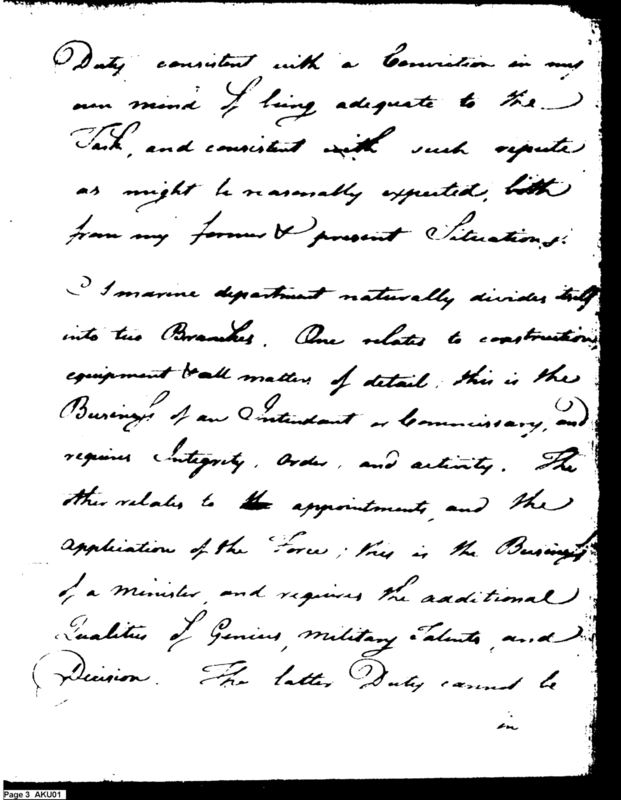 Duty consistent with a Conviction in my
own mind of being adequate to the
Task, and consistent with such repute
as might be reasonably expected, both
from my former & present Situations.
A marine department naturally divides itself
into two Branches. One relates to construction,
equipment & all matters of detail; this is the
Business of an Intendant or Commissary, and
requires Integrity, order, and activity. The
other relates to the appointments, and the
application of the Force; this is the Business
of a minister, and requires the additional
Qualities of Genius, military Talents, and
Decision. The latter Duty cannot be
in
Page 3 AKU01